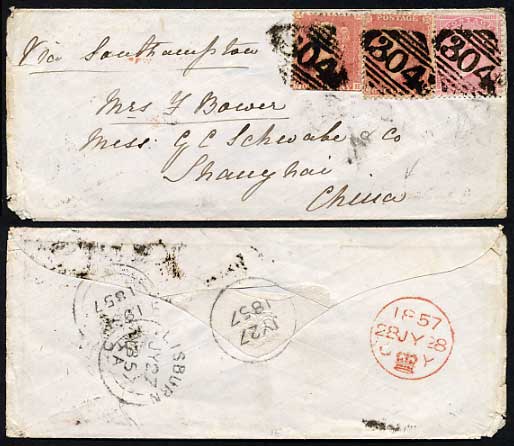 POSTAGE
304
304
304
Via Southampton
Mrs F Bower
Mess. G C Schwabe & Co
Shanghai
China
1857
LISBURN
JY 27
1857
JY 27
1857
1857
28 JY 28